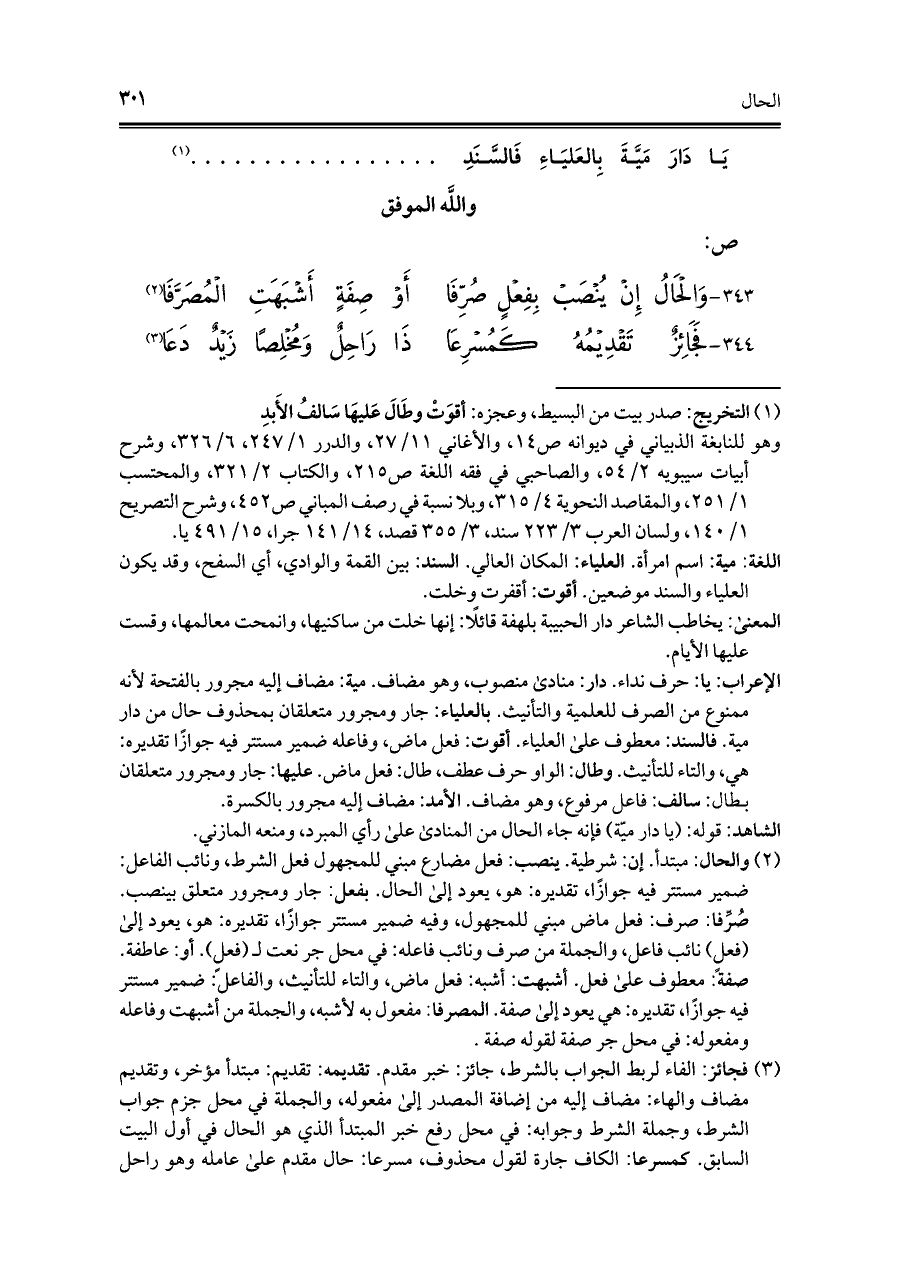 الحال
٣٠١
يَـا دَارَ مَيَّـةَ بِالعَليَـاءِ فَالسَّـنَدِ . . . . . . . . . . . . . . . . . (١)
واللَّه الموفق
ص:
٣٤٣-وَالْحَالُ إِنْ يُنْصَبْ بِفِعْلٍ صُرِّفَا أَوْ صِفَةٍ أَشْبَهَتِ الْمُصَرَّفَا(٢)
٣٤٤-فَجَائِزٌ تَقْدِيْمُهُ كَمُسْرِعَا ذَا رَاحِلٌ وَمُخْلِصًا زَيْدٌ دَعَا(٣)
(١) التخريج: صدر بيت من البسيط، وعجزه: أقوَتْ وطَالَ عَليهَا سَالفُ الأَبدِ
وهو للنابغة الذبياني في ديوانه ص١٤، والأغاني ١١/ ٢٧، والدرر ١/ ٢٤٧، ٦/ ٣٢٦، وشرح
أبيات سيبويه ٢/ ٥٤، والصاحبي في فقه اللغة ص٢١٥، والكتاب ٢/ ٣٢١، والمحتسب
١/ ٢٥١، والمقاصد النحوية ٤/ ٣١٥، وبلا نسبة في رصف المباني ص٤٥٢، وشرح التصريح
١/ ١٤٠، ولسان العرب ٣/ ٢٢٣ سند، ٣/ ٣٥٥ قصد، ١٤/ ١٤١ جرا، ١٥/ ٤٩١ يا.
اللغة: مية: اسم امرأة. العلياء: المكان العالي. السند: بين القمة والوادي، أي السفح، وقد يكون
العلياء والسند موضعين. أقوت: أقفرت وخلت.
المعنىٰ: يخاطب الشاعر دار الحبيبة بلهفة قائلًا: إنها خلت من ساكنيها، وانمحت معالمها، وقست
عليها الأيام.
الإعراب: يا: حرف نداء. دار: منادىٰ منصوب، وهو مضاف. مية: مضاف إليه مجرور بالفتحة لأنه
ممنوع من الصرف للعلمية والتأنيث. بالعلياء: جار ومجرور متعلقان بمحذوف حال من دار
مية. فالسند: معطوف علىٰ العلياء. أقوت: فعل ماض، وفاعله ضمير مستتر فيه جوازًا تقديره:
هي، والتاء للتأنيث. وطال: الواو حرف عطف، طال: فعل ماض. عليها: جار ومجرور متعلقان
بـطال: سالف: فاعل مرفوع، وهو مضاف. الأمد: مضاف إليه مجرور بالكسرة.
الشاهد: قوله: (يا دار ميّة) فإنه جاء الحال من المنادىٰ علىٰ رأي المبرد، ومنعه المازني.
(٢) والحال: مبتدأ. إن: شرطية. ينصب: فعل مضارع مبني للمجهول فعل الشرط، ونائب الفاعل:
ضمير مستتر فيه جوازًا، تقديره: هو، يعود إلىٰ الحال. بفعل: جار ومجرور متعلق بينصب.
صُرِّفا: صرف: فعل ماض مبني للمجهول، وفيه ضمير مستتر جوازًا، تقديره: هو، يعود إلىٰ
(فعل) نائب فاعل، والجملة من صرف ونائب فاعله: في محل جر نعت لـ (فعل). أو: عاطفة.
صفة: معطوف علىٰ فعل. أشبهت: أشبه: فعل ماض، والتاء للتأنيث، والفاعل: ضمير مستتر
فيه جوازًا، تقديره: هي يعود إلىٰ صفة. المصرفا: مفعول به لأشبه، والجملة من أشبهت وفاعله
ومفعوله: في محل جر صفة لقوله صفة .
(٣) فجائز: الفاء لربط الجواب بالشرط، جائز: خبر مقدم. تقديمه: تقديم: مبتدأ مؤخر، وتقديم
مضاف والهاء: مضاف إليه من إضافة المصدر إلىٰ مفعوله، والجملة في محل جزم جواب
الشرط، وجملة الشرط وجوابه: في محل رفع خبر المبتدأ الذي هو الحال في أول البيت
السابق. كمسرعا: الكاف جارة لقول محذوف، مسرعا: حال مقدم علىٰ عامله وهو راحل